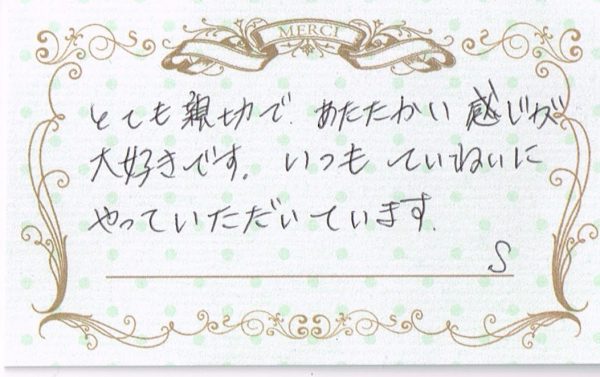 MERCI
とても親切で、あたたかい感じが
大好きです。いつもていねいに
やっていただいています。
S